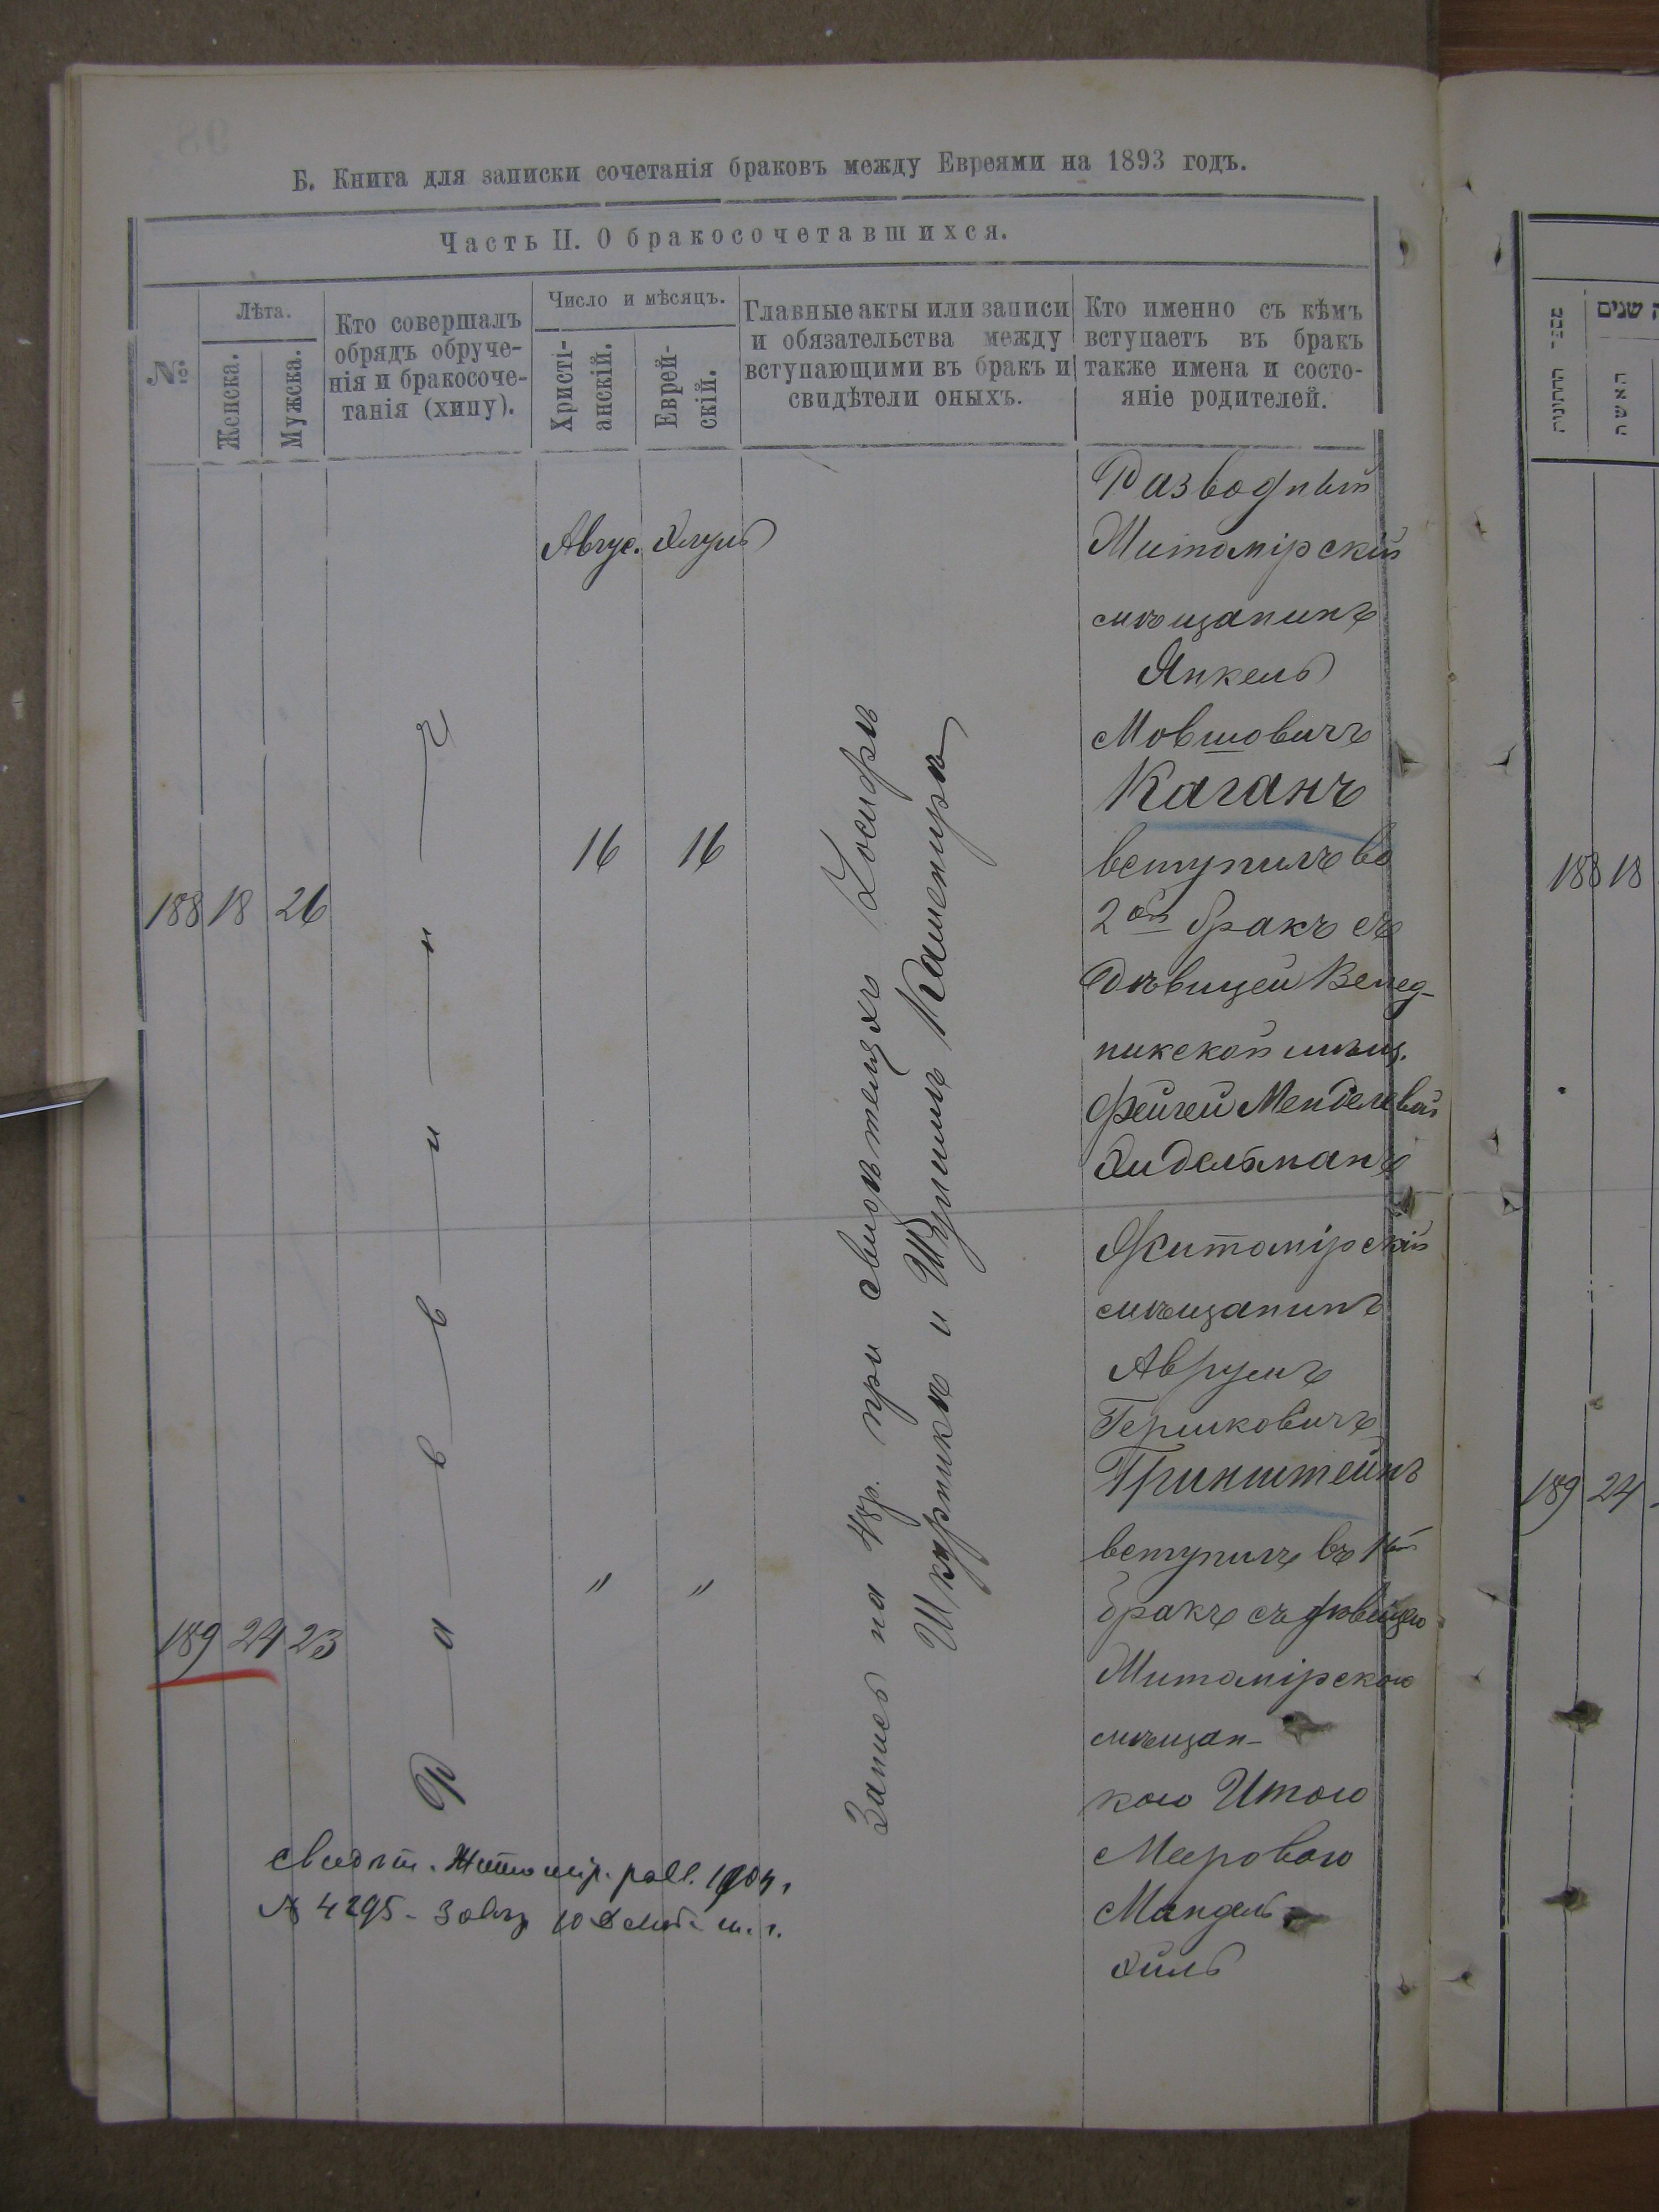 Б. Книга для записки сочетанія браковъ между Евреями на 1893 годъ.
Часть II. О бракосочетавшихся.
№
Лѣта.
Женска.
Мужска.
Кто совершалъ
обрядъ обруче-
нія и бракосоче-
танія (хипу).
Число и мѣсяцъ.
Христі-
анскій.
Еврей-
скій.
Главные акты или записи
и обязательства между
вступающими въ бракъ и
свидѣтели оныхъ.
Кто именно съ кѣмъ
вступаетъ въ бракъ
также имена и состо-
яніе родителей.
Авгус. Элуль
188 18 26
16 16
Раввинъ
Запись на 48р. при свидѣтеляхъ Іосифѣ
Шкурникѣ и Шулимѣ Каменирѣ
Разводный
Житомірскій
мѣщанинъ
Янкель
Мовшовичъ
Каганъ
вступилъ во
2ой бракъ съ
дѣвицей Велед-
никской мѣщ.
Фейгей Менделевой
Эйдельманъ
189 24 23
" "
Житомірскій
мѣщанинъ
Аврумъ
Гершковичъ
Гринштейнъ
вступилъ въ 1ый
бракъ съ дѣвицею
Житомірскою
мѣщан-
кою Итою
Мееровою
Мандель
Эйль
Свидѣт. Житомір. 1904 г.
№ 4295
שנים
האשה
188 18
189 24